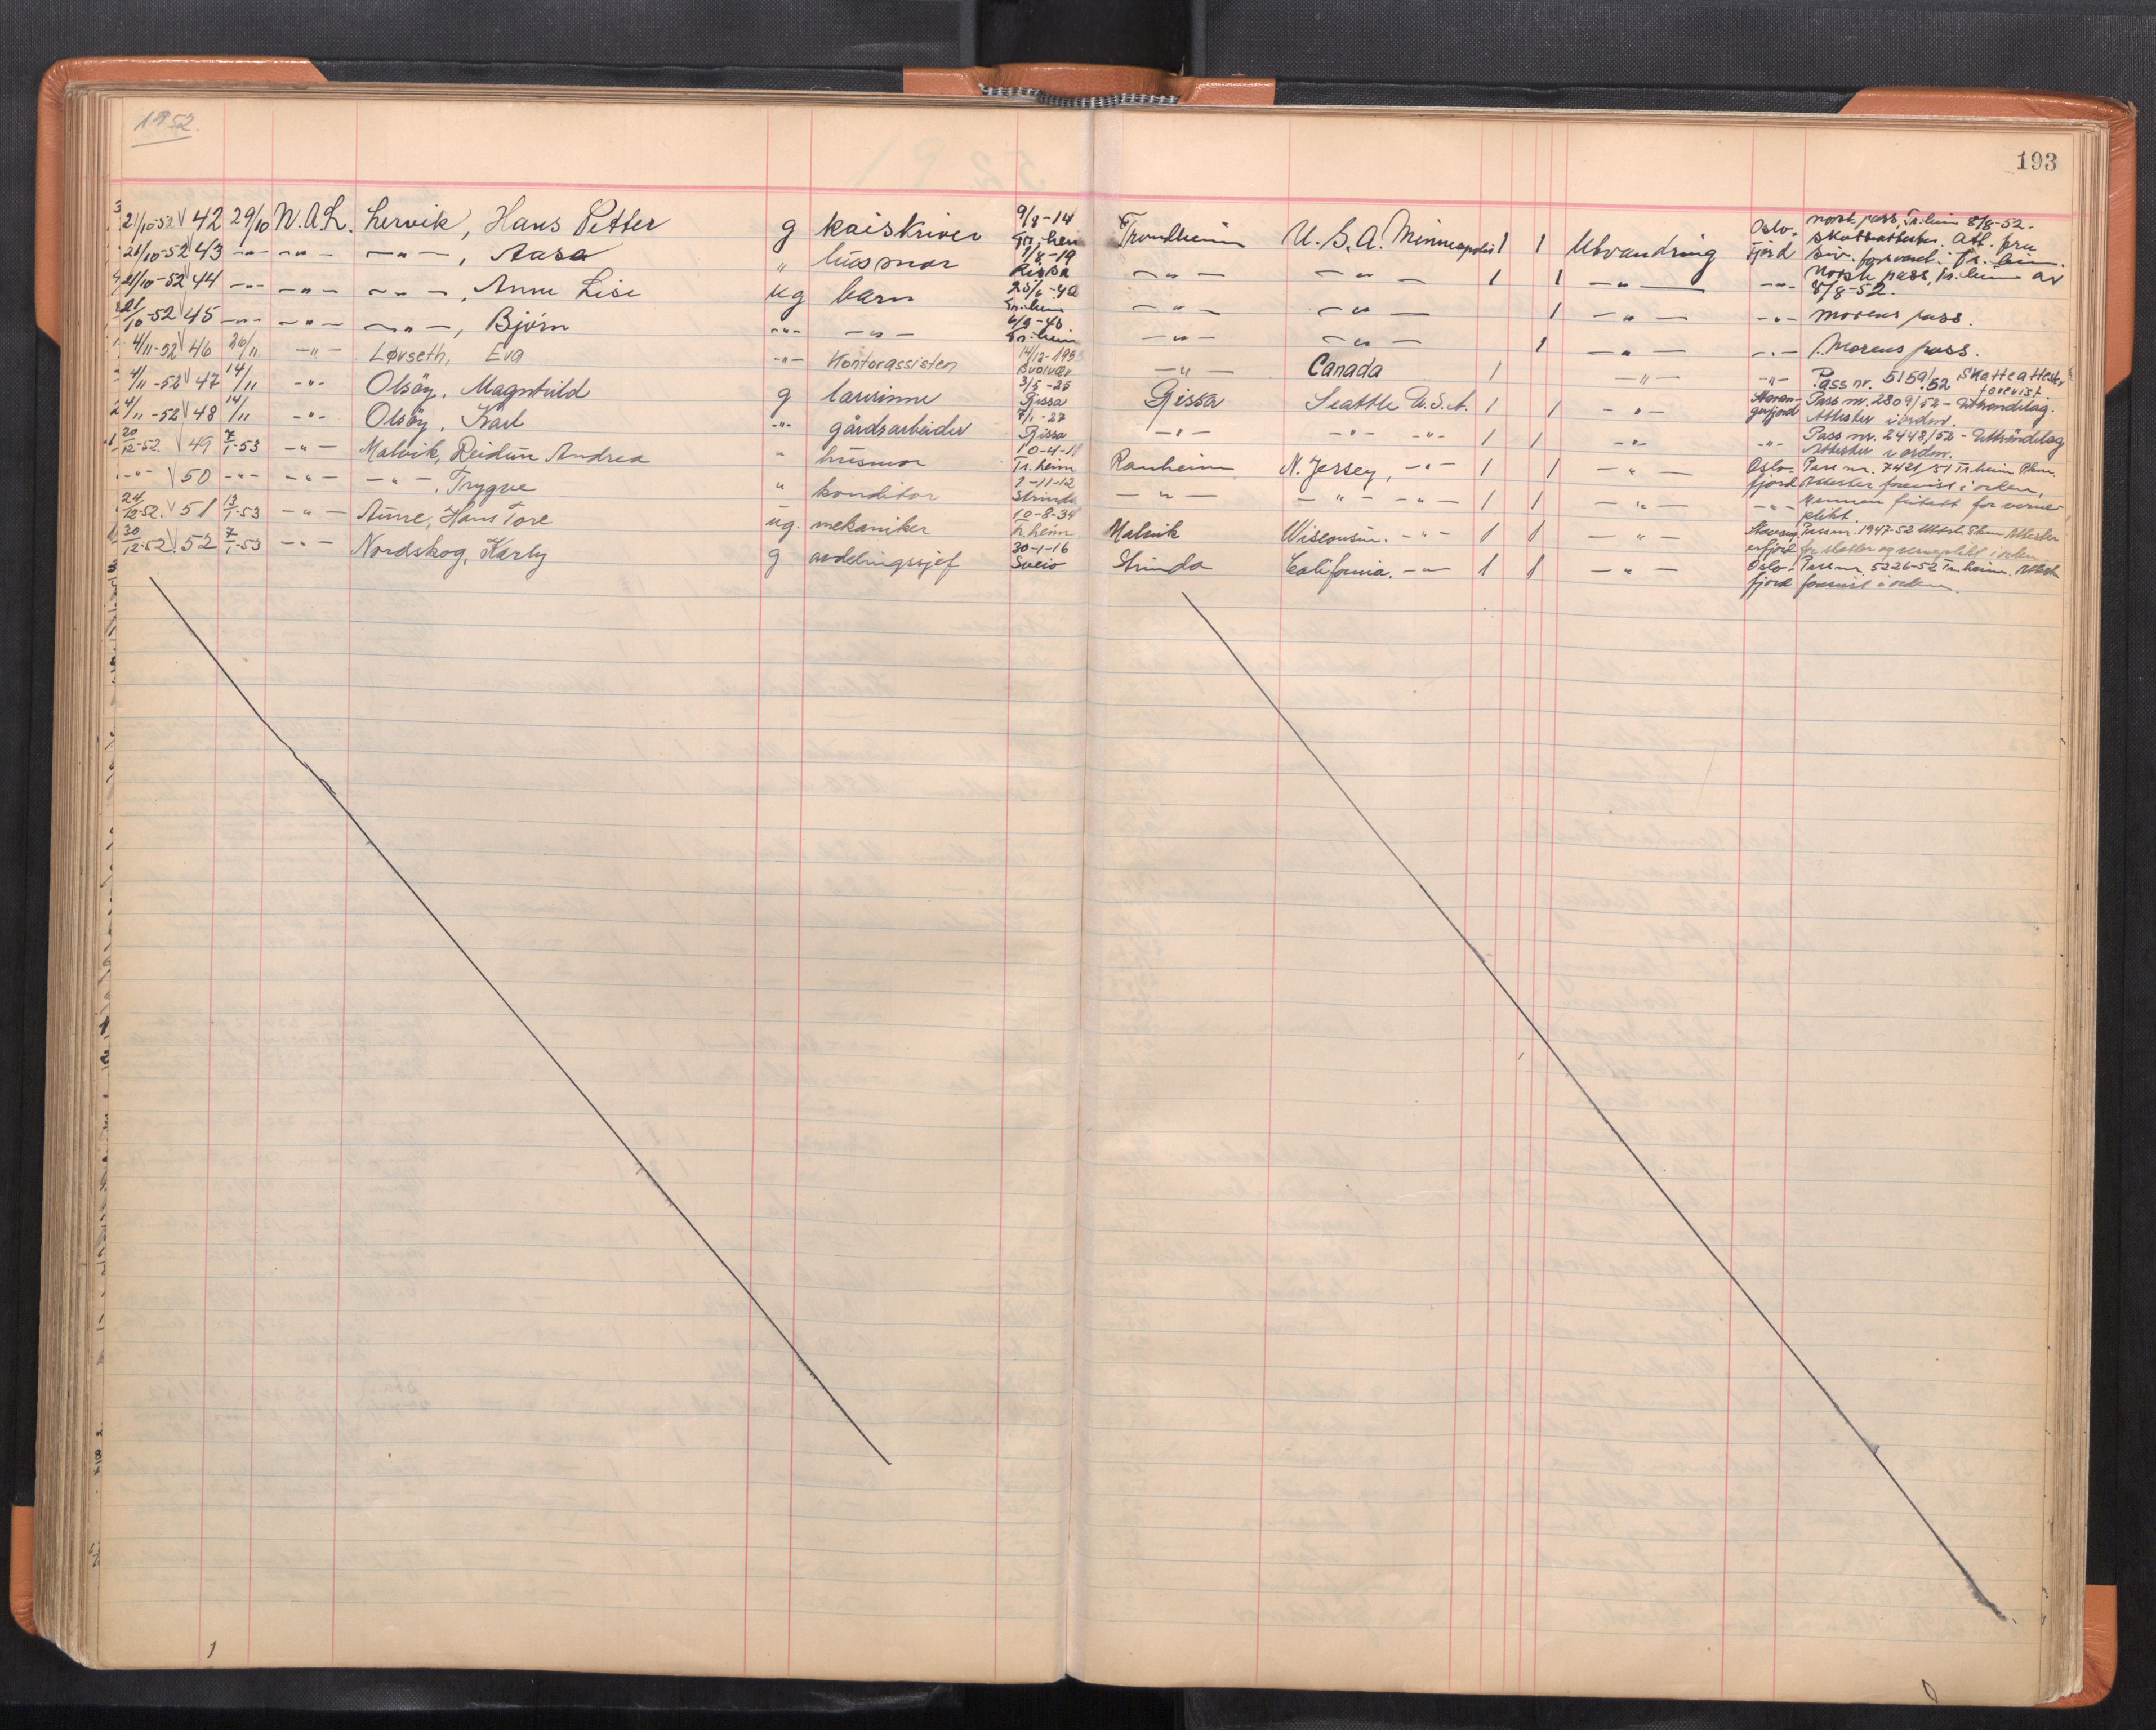 1952.
193
21/10-52 √ 42 29/10 N.A.L. Lervik, Hans Petter g kaiskriver 9/8-14 Tr.heim Trondheim U.S.A. Minneapolis 1 1 Utvandring Oslo-fjord norsk pass, Tr.heim 8/8-52. Skatteattester. Att. fra siv. forsvaret. Tr.heim.
21/10-52 43 -"- -"- -"-, Aasa " husmor 1/8-19 Rissa -"- -"- 1 1 -"- -"- Norsk pass, Tr.heim av 8/8-52.
21/10-52 44 -"- -"- -"-, Anne Lise ug barn Tr.heim -"- -"- 1 -"- -"- morens pass.
21/10-52 45 -"- -"- -"-, Bjørn -"- -"- Tr.heim -"- -"- 1 -"- -"- Morens pass.
4/11-52 √ 46 26/11 -"- Løvseth, Eva -"- Kontorassisten 14/12-1933 Svolvær -"- Canada 1 -"- -"- Pass nr. 5159/52 Skatteattester forevist
4/11-52 √ 47 14/11 -"- Olsöy, Magnhild g lærerinne 3/5-25 Rissa Rissa Seattle U.S.A. 1 1 -"- Stavangerfjord Pass nr. 2309/52 - Uttrøndelag. Attester i orden.
4/11-52 √ 48 14/11 -"- Olsöy, Karl -"- gårdsarbeider 7/1-27 Rissa -"- -"- -"- 1 1 -"- -"- Pass nr. 2448/52 - Uttröndelag Attester i orden.
20/12-52. √ 49 7/1-53 -"- Malvik, Reidun Andrea " husmor 10-4-1 Tr.heim Ranheim N. Jersey, -"- 1 1 -"- Oslo-fjord Pass nr. 7421/51 Tr.heim Attester forevist i orden.
-"- √ 50 -"- -"- -"-, Trygve " konditor 2-11-12 Strinda -"- -"- -"- 1 1 -"- -"- fritatt for verneplikt.
24/12-52. √ 51 13/1-53 -"- Aune, Hans Tore ug. mekaniker 10-8-34 Tr.heim Malvik Wisconsin. -"- 1 1 -"- Stavangerfjord Pass nr. 1947-52 Attester for skatter og verneplikt i orden.
30/12-52 √ 52 7/1-53 -"- Nordskog, Karly g avdelingssjef 30-1-16 Sveio Strinda California. -"- 1 1 -"- Oslo-fjord Pass nr. 5226-52 Tr.heim. forevist i orden.